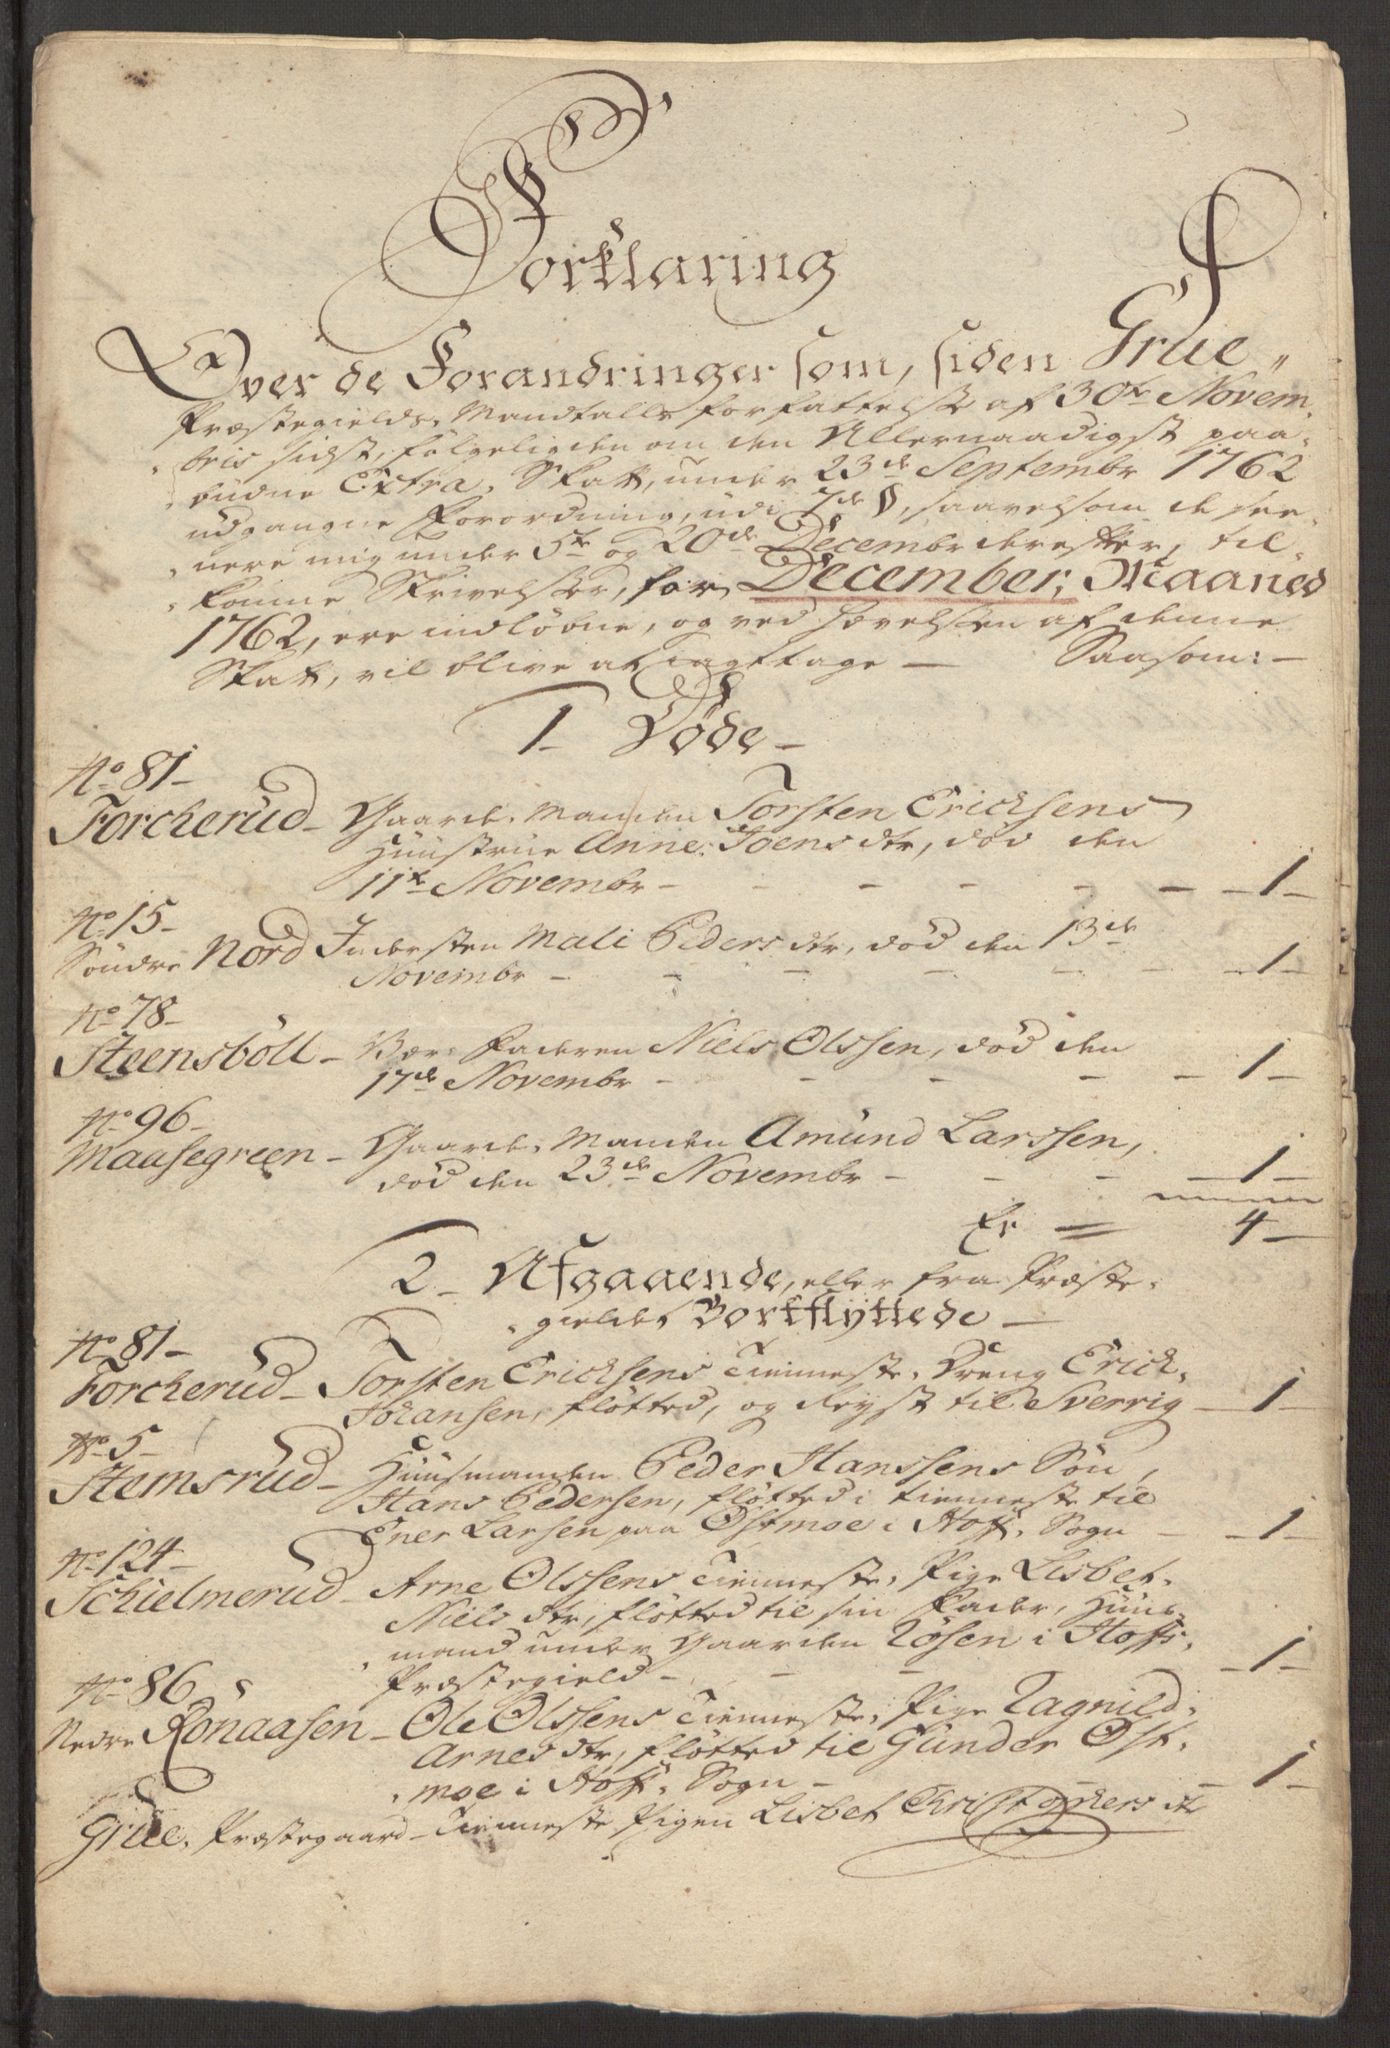 Forklaring
Over de Forandringer som, siden Grue-
Præstegields, Mandtalls forfattelse af 30te Novem-
bris sidst, følgelig den om den Allernaadigst paa-
budne Extra, Skatt, under 23de Septembr 1762
udgangne Forordning, udi 7de §, saavelsom de see-
nere mig under 5te og 20de Decembr derefter, til-
komne Skrivelser, for December, Maaned
1762, ere indløbne, og ved hævelsen af denne
Skatt, vil blive at iagttage — Saasom: —
1 Døde —
No 81 —
Forcherud — Gaard, Manden Torsten Ericksens
Huustrue Anne Joens dtr, død den
11te Novembr — 1 —
No 15 —
Søndre Nord Indersten Mali Peders dtr, død den 13de
Novembr — 1 —
No 78 —
Steensböll — Faderen Niels Olssen, død den
17de Novembr — 1 —
No 96 —
Maasegreen — Gaard, Manden Amund Larssen,
død den 23de Novembr — 1 —
Er = 4 —
2 — Afgaaende, eller fra Præste-
gieldet Bortflyttede —
No 81 —
Forcherud — Torsten Ericksens Tienneste, Dreng Erick
Johansen, fløtted, og Reyst til Sverrig — 1 —
No 5 —
Stemsrud — Huusmanden Peder Hanssens Søn,
Hans Pedersen, fløtted i tienneste til
Ener Larsen paa Østmoe i Hoff, Sogn — 1 —
No 124 —
Schielmerud — Arne Olssens Tienneste, Pige Lisbet
Niels dtr, fløtted til sin Fader, Huus-
mand under Gaarden Rösen i Hoffs,
Præstegield — 1 —
No 86
Nedre Rönaasen — Ole Olssens Tienneste, Pige Ragnild
Arnes dtr, fløtted til Gunder Øst-
moe i Hoff, Sogn — 1 —
Grue, Præstegaard — Tienneste Pigen Lisbet Christophers dtr